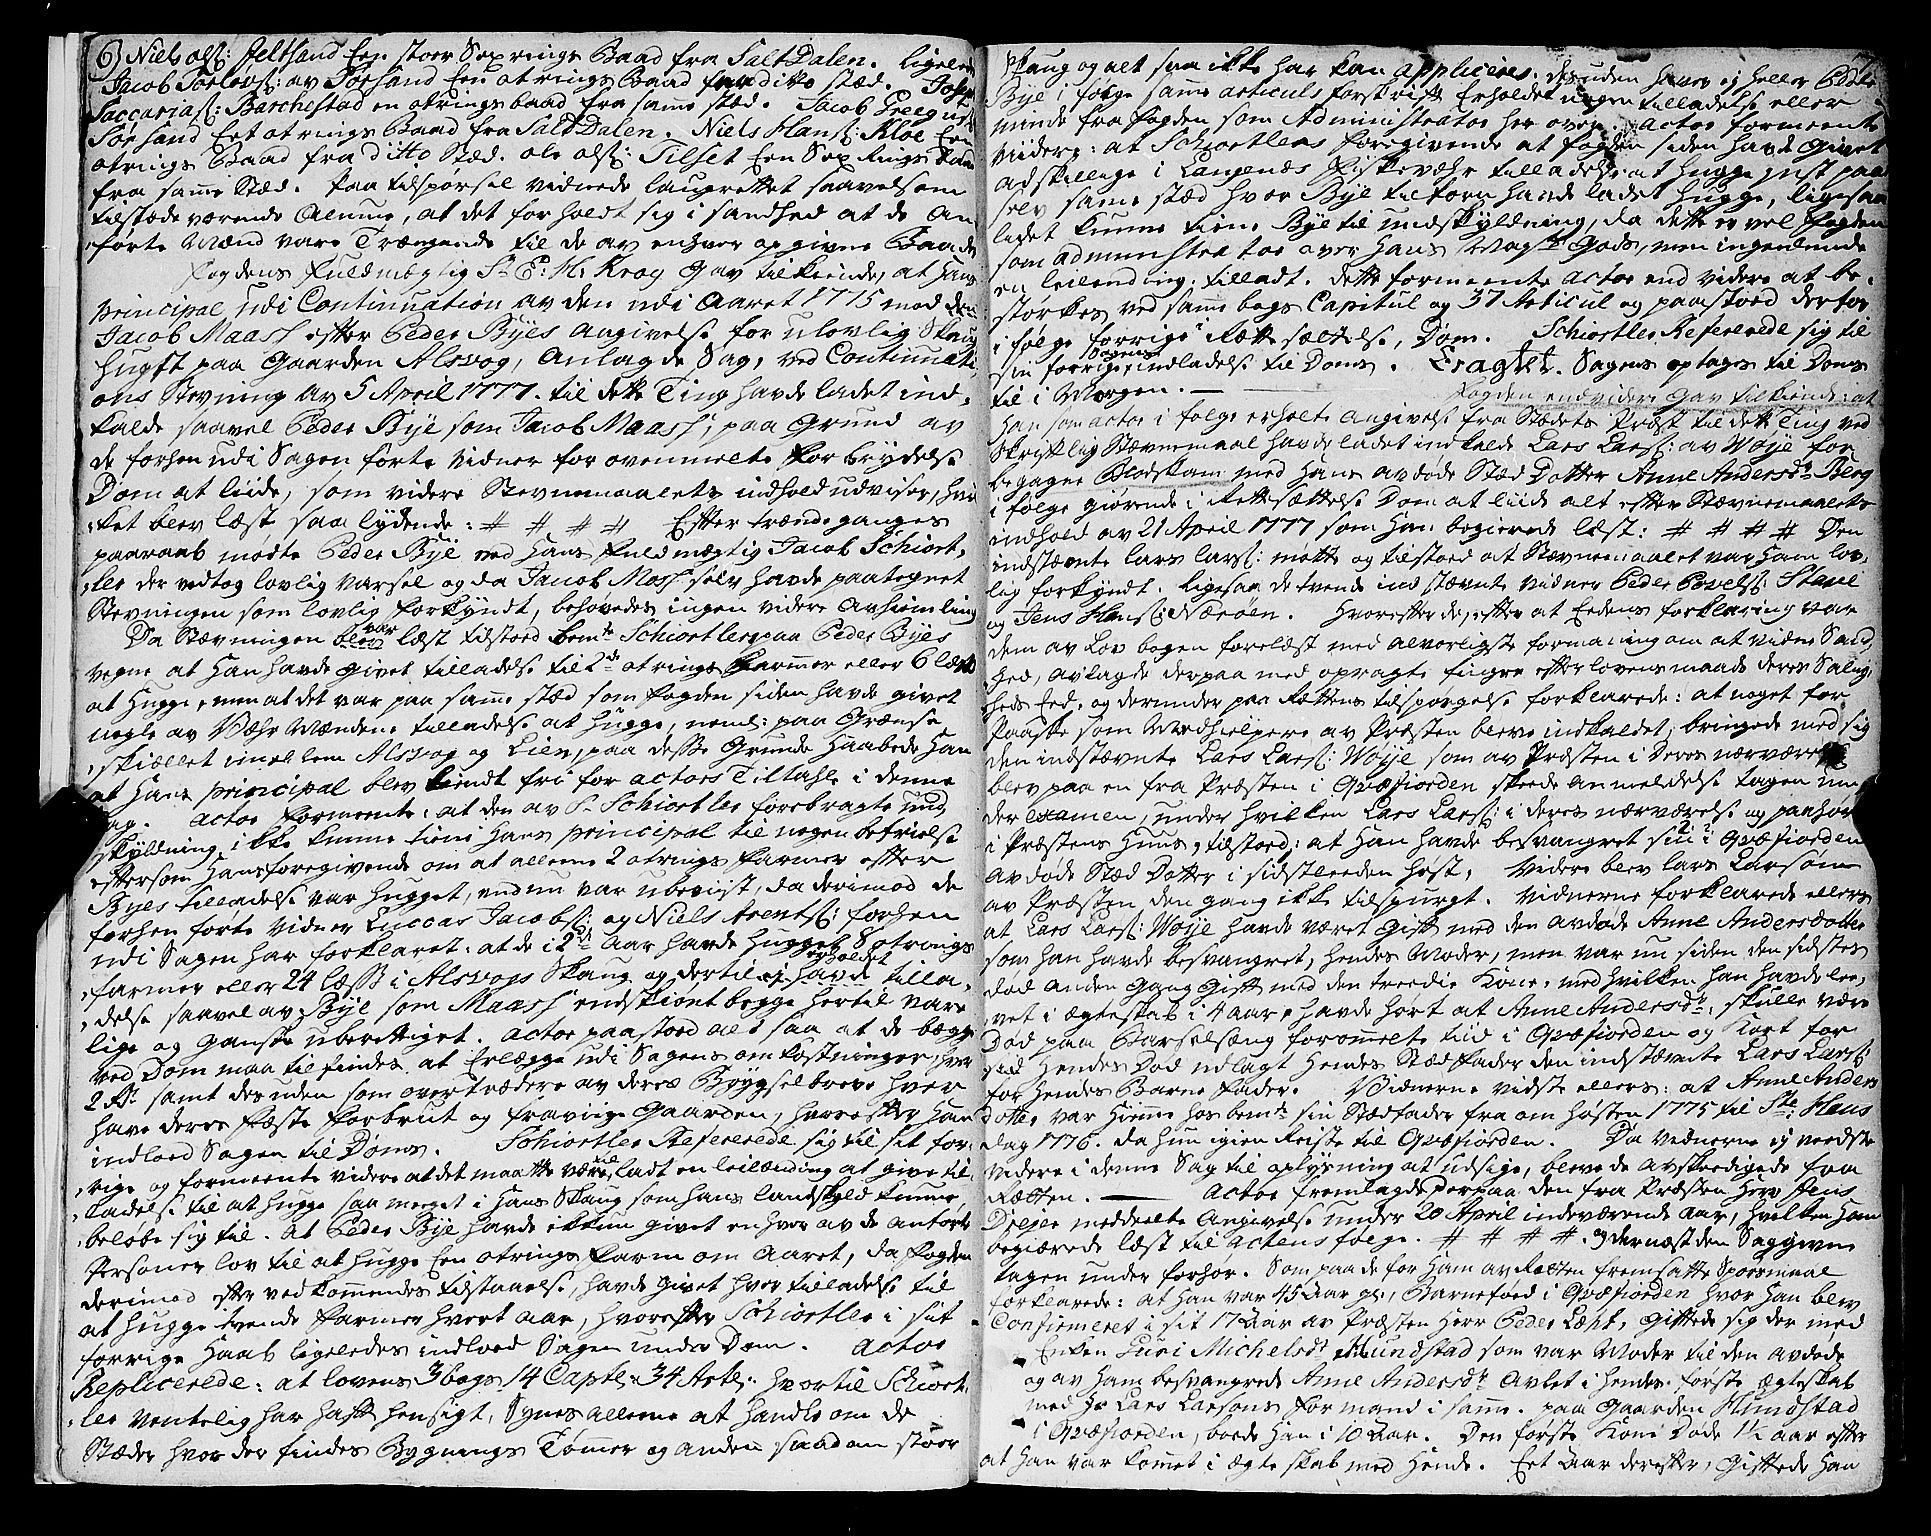 6) Niels ols: Jeltsand Een stoer Sexrings Baad fra Salt Dalen. ligeledes
Jacob Torlevs: av Torsand Een otrings Baad fra ditto stæd.
Saccarias: Barchestad en otrings baad fra samme stæd. Jacob Greegus:
Sørsand Eet otrings Baad fra Salt Dalen. Niels Hans: Kloe Een
otrings Baad fra ditto Stæd. ole ols: Tilset Een Sex Rings Baad
fra samme Stæd. Paa tilspørsel vidnede laugrettet saavelsom
tilstæde værende Almue, at det forholdt sig i sandhed at de An
førte Mænd vare Trængende til de av enhver opgivne Baade
Fogdens Fuldmægtig Sr P: M: Krog Gav tilkiende, at Hans
principal, udi Continuation av den udi Aaret 1775 mod den
Jacob Maash efter Peder Byes Angivelse for ulovlig Skoug
hugst paa Gaarden Alsvog, Anlagde Sag, ved Continuati
ons Stevning av 5 April 1777. til dette Ting havde ladet ind,
kalde saavel Peder Bye som Jacob Maash, paa Grund av
de forhen udi Sagen førte vidner for ovenmelte Forbrydelse
Dom at liide, som videre Stevnemaalets indhold udviser, hvil
ket blev læst saa lydende: # # # # Efter trende ganges
paaraab mødte Peder Bye ved Hans Fuldmægtig Jacob Schiort,
ler der vedtog lovlig varsel og da Jacob Mash selv havde paategnet
Stevningen som lovlig forkyndt, behøvedes ingen videre Avhiemling
Da Stævningen var læst tilstoed bemte Schiortler paa Peder Byes
vegne at Han havde givet tilladelse til 2de otrings Farmer eller 6 læs
at Hugge, men at det var paa samme stæd som Fogden siden havde givet
nogle av Væhr Mændene tilladelse at hugge, neml: paa Grænse
skiællet imellem Alsvog og Lien, paa desse Grunde Haabede Han
at Hans principal blev kiendt fri for actors Tiltahle i denne
Sag. Actor formeente: at den av S. Schiortler forebragte und
skyldning ikke kunne tiene Hans principal til nogen befrielse
eftersom Hans foregivende om at allene 2 otrings Farmer efter
Byes tilladelse var hugget, endnu var ubeviist, da derimod de
forhen førte vidner Luccas Jacobs: og Niels Arents: forhen
udi Sagen har forklaret: at de i 2de Aar havde Hugget 8 otrings
farmer eller 24 læss i Alsvogs Skoug og dertil erholdet tilla,
delse saavel av Bye som Maash endskiønt begge hertil vare
lige og ganske uberettiget. Actor paastoed altsaa at de begge
ved Dom maa tilfindes at Erlægge udi Sagens omkostninger, hver
2 Rd samt desuden som overtrædere av deres Bøygselbreve hver
have deres Fæste forbrut og fravige Gaarden, hvorefter Han
indloed Sagen til Doms. Schiortler Refererede sig til sit for,
rige og formeente videre at det maatte være tilladt en leilænding at give til
ladelse til at hugge saa meget i Hans Skoug som hans landskyld kunne
beløbe sig til. at Peder Bye havde ikkun givet enhver av de anførte
Personer lov til at hugge Een otrings Farm om Aaret, da Fogden
derimod efter vedkommendes tilstaaelse, havde givet hver tilladelse til
at hugge tvende Farmer hvert aar, hvorefter Schiortler i sit
forrige Haab ligeledes indloed Sagen under Dom. Actor
Replicerede: at lovens 3 bogs 14 Captl: 34 Artl: hvortil Schiort,
ler ventelig har haft hensigt, Synes allene at handle om de
Stæder hvor der findes Bygnings Tømmer og anden saadan stoer
Skoug og alt saa ikke har kan appliceres. desuden haver ej heller Peder
Bye i følge samme articuls forskrift Erholdet nogen tilladelse eller
minde fra Fogden som Administrator her over. Actor formeente
viidere: at Schiortlers foregivende at Fogden siden havde givet
adskillige i Langenæs Fiskevæhr tilladelse at hugge just paa
selv samme stæd hvor Bye tilforn havde ladet hugge, ligesaa
lidet kunne tiene Bye til undskyldning, da dette er vel Fogden
som administrator over Hans May:ts Gods, men ingenlunde
en leilending, tilladt. Dette formeente Actor end videre at be,
størkes ved samme bogs Capitul og 37 Articul og paastoed derfor
i følge forrige i Rette sættelse, Dom. Schiortler Refererede sig til
sin forrige Sagens indladelse til Doms. Eragtet. Sagen optages til Doms
til i Morgen.
Fogden endvidere Gav tilkiende: at
Han som actor i følge erholte Angivelse fra Stædets Præst til dette Ting ved
Skriftlig Stævnemaal havde ladet indkalde Lars Lars: av Woje for
begagne Blodskam med Hans avdøde Stæd Dotter Anne Andersdr Berg
i følge giørende i Rettesættelse Dom at liide alt efter Stævnemaalets
indhold av 21 April 1777 som Han begierede læst: # # # # Den
indstævnte Lars lars: møtte og tilstoed at Stævnemaalet var Ham lov,
lig forkyndt. Ligesaa de tvende indstævnte vidner Peder Povels: Stene
og Jens Hans: Nærøen. Hvorefter de, efter at Eedens forklaring var
dem av Lov bogen forelæst med alvorligste formaning om at vidne Sand,
hed, avlagde derpaa med opragte fingre efter lovens maade deres Salig,
heds Eed. og derunder paa Rettens tilspørgelse forklarede: at noget for
Paaske som Medhielpere av Præsten bleve indkaldet, bringede med sig
den indstævnte Lars Lars: Woje som av Præsten i Deres nærværelse
blev paa en fra Præsten i Qvæfiorden skeede anmeldelse tagen un
der examen, under hvilken Lars Lars: i deres nærværelse og paahør
i Præstens Huus, tilstoed: at Han havde besvangret sin i Qvæfiorden
avdøde Stæd Dotter i sidstleeden høst, Videre blev lars Larsøn
av Præsten den gang ikke tilspurgt. Vidnerne forklarede ellers
at Lars Lars: Woje havde været gift med den avdøde Anne Andersdotter
som han havde besvangret, hendes Moder, men var nu siden den sidstes
død anden Gang Gift med den treedie Kone, med hvilken han havde le,
vet i ægteskab i 4 aar, havde hørt at Anne Andersdr, skulle være
Død paa Barselsæng forommelte tiid i Qvæfiorden og kort for
sin Hendes Død udlagt Hendes Stædfader den indstævnte Lars Lars:
for Hendes Barne Fader. Vidnerne vidste ellers: at Anne Anders
dotter var Hiemme hos bemte sin Stædfader fra om høsten 1775 til Ste Hans
dag 1776. da hun igien Reiste til Qvæfiorden. Da vidnerne ej veedste
videre i denne Sag til oplysning at udsige, bleve de avskeedigede fra
Rætten. Actor fremlagde derpaa den fra Præsten Herr Jens
Drejer meddeelte Angivelse under 20 April indeværende aar, hvilken Han
begiærede læst til Actens følge. # # # #. og dernæst den Saggivne
tagen under forhør. Som paa de for Ham av Retten fremsatte Spørsmaal
forklarede: at Han var 45 Aar gl:, Barneføed i Qvæfiorden hvor Han blev
Confirmeret i sit 17 Aar av Præsten Herr Peder Leht, giftede sig der med
Enken Guri Michelsdr Hundstad som var Moder til den avdøde
og av Ham besvangrede Anne Andersdr Avlet i Hendes første ægteskab
med Lars Larsøns Formand i samme. paa Gaarden Hundstad
i Qvæfiorden, boede Han i 10 Aar. Den første Kone Døde 1½ aar efter
at Han var kommet i ægteskab med Hende. Eet Aar derefter, Giftede Han